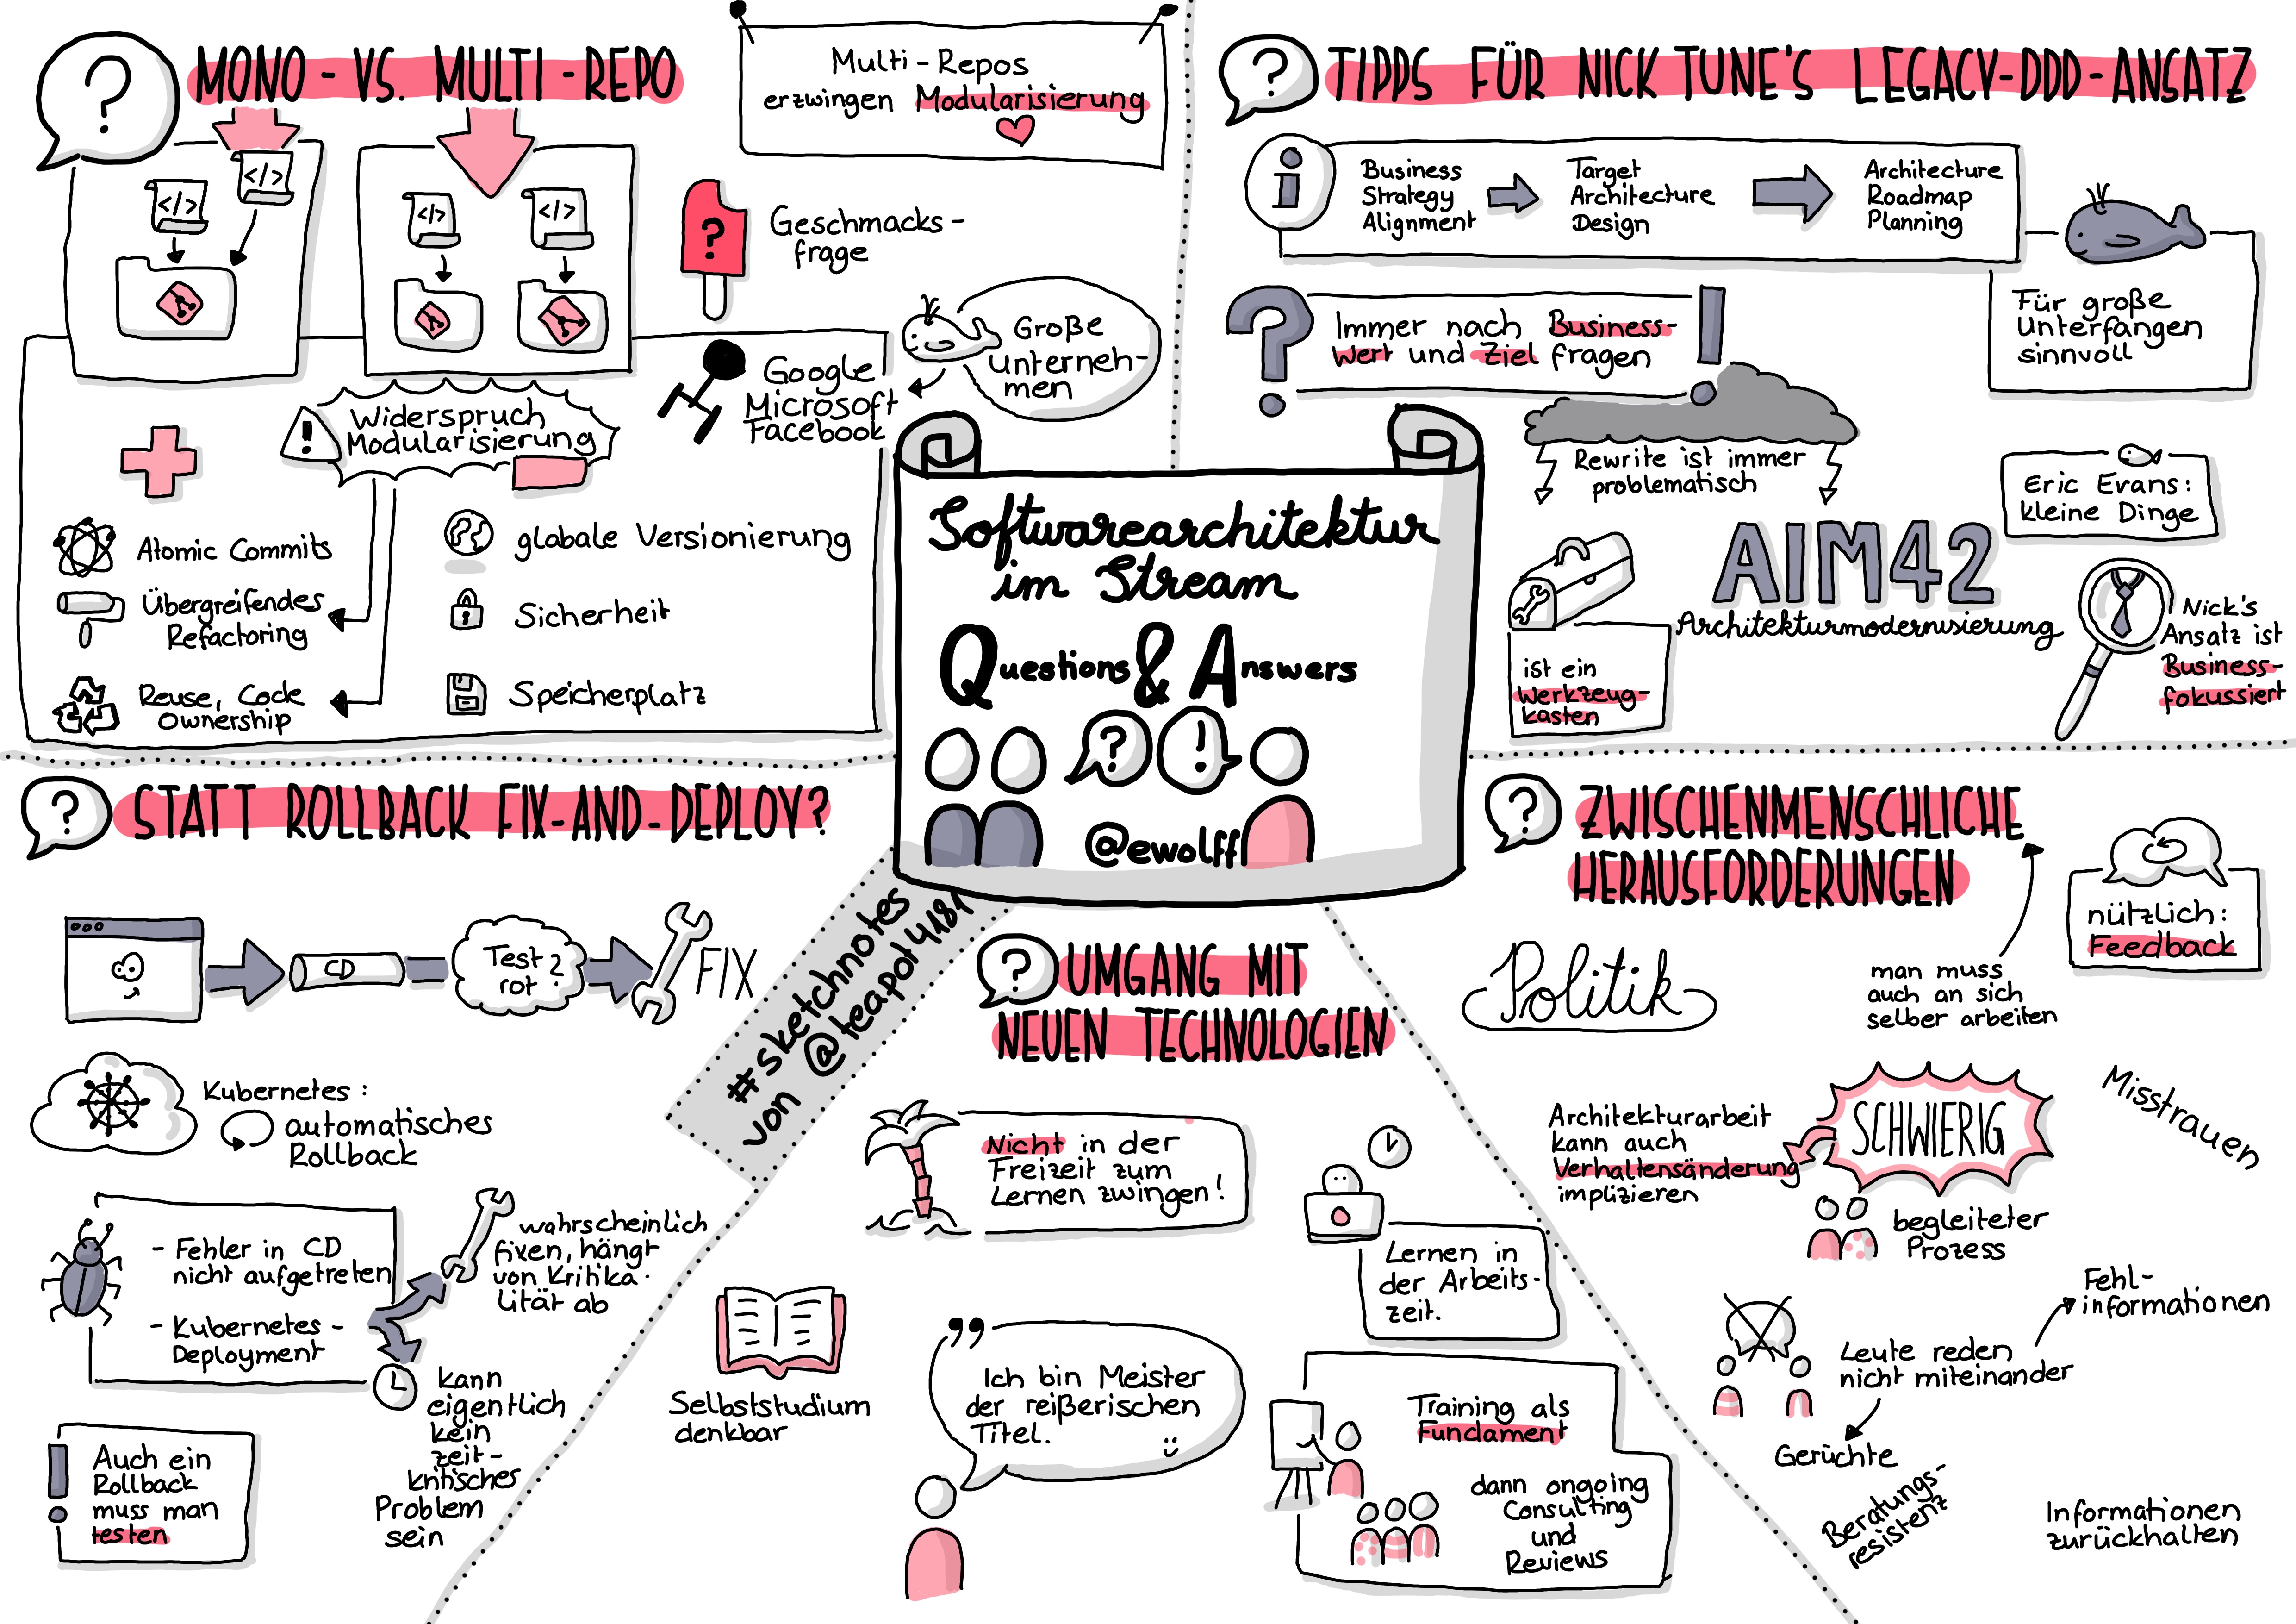 MONO- VS. MULTI-REPO
Multi-Repos
erzwingen Modularisierung
</>
</>
</>
</>
Geschmacks-
frage
Große
Unterneh-
men
Google
Microsoft
Facebook
Widerspruch
Modularisierung
Atomic Commits
Übergreifendes
Refactoring
Reuse, Code
Ownership
globale Versionierung
Sicherheit
Speicherplatz
TIPPS FÜR NICK TUNE'S LEGACY-DDD-ANSATZ
Business
Strategy
Alignment
Target
Architecture
Design
Architecture
Roadmap
Planning
Für große
Unterfangen
sinnvoll
Immer nach Business-
Wert und Ziel fragen
Rewrite ist immer
problematisch
Eric Evans:
kleine Dinge
AIM42
Architekturmodernisierung
ist ein
Werkzeug-
kasten
Nick's
Ansatz ist
Business-
fokussiert
Softwarearchitektur
im Stream
Questions & Answers
@ewolff
#sketchnotes
von @teapot4181
STATT ROLLBACK FIX-AND-DEPLOY?
CD
Test
rot?
FIX
Kubernetes:
automatisches
Rollback
- Fehler in CD
nicht aufgetreten
- Kubernetes-
Deployment
wahrscheinlich
fixen, hängt
von Kritika-
lität ab
kann
eigentlich
kein
zeit-
kritisches
Problem
sein
Auch ein
Rollback
muss man
testen
UMGANG MIT
NEUEN TECHNOLOGIEN
Nicht in der
Freizeit zum
Lernen zwingen!
Lernen in
der Arbeits-
zeit.
Selbststudium
denkbar
Ich bin Meister
der reißerischen
Titel.
Training als
Fundament
dann ongoing
Consulting
und
Reviews
ZWISCHENMENSCHLICHE
HERAUSFORDERUNGEN
nützlich:
Feedback
man muss
auch an sich
selber arbeiten
Politik
Architekturarbeit
kann auch
Verhaltensänderung
implizieren
SCHWIERIG
Misstrauen
begleiteter
Prozess
Fehl-
informationen
Leute reden
nicht miteinander
Gerüchte
Beratungs-
resistenz
Informationen
zurückhalten